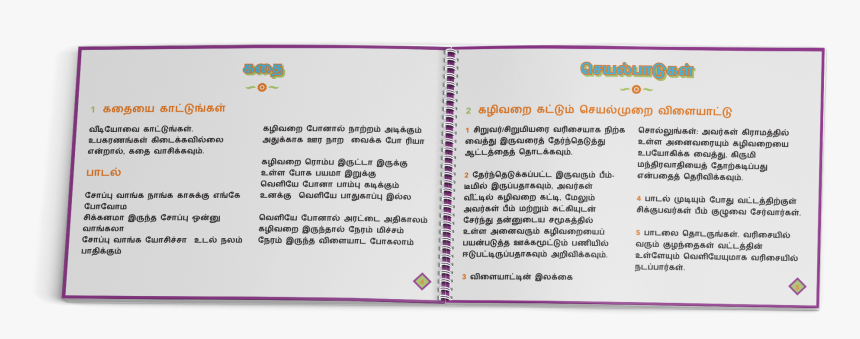 கதை
1 கதையை காட்டுங்கள்
வீடியோவை காட்டுங்கள்.
உபகரணங்கள் கிடைக்கவில்லை
என்றால், கதை வாசிக்கவும்.
பாடல்
சோப்பு வாங்க நாங்க காசுக்கு எங்கே
போவோம
சிக்கனமா இருந்த சோப்பு ஒன்னு
வாங்கலா
சோப்பு வாங்க யோசிச்சா உடல் நலம்
பாதிக்கும்
கழிவறை போனால் நாற்றம் அடிக்கும்
அதுக்காக ஊர நாற வைக்க போ ரியா
கழிவறை ரொம்ப இருட்டா இருக்கு
உள்ள போக பயமா இறுக்கு
வெளியே போனா பாம்பு கடிக்கும்
உனக்கு வெளியே பாதுகாப்பு இல்ல
வெளியே போனால் அரட்டை அதிகாலம்
கழிவறை இருந்தால் நேரம் மிச்சம்
நேரம் இருந்த விளையாட போகலாம்
செயல்பாடுகள்
2 கழிவறை கட்டும் செயல்முறை விளையாட்டு
1 சிறுவர்/சிறுமியரை வரிசையாக நிற்க
வைத்து இருவரைத் தேர்ந்தெடுத்து
ஆட்டத்தைத் தொடக்கவும்.
2 தேர்ந்தெடுக்கப்பட்ட இருவரும் பீம்-
டீமில் இருப்பதாகவும், அவர்கள்
வீட்டில் கழிவறை கட்டி, மேலும்
அவர்கள் பீம் மற்றும் சுட்கியுடன்
சேர்ந்து தன்னுடைய சமூகத்தில்
உள்ள அனைவரும் கழிவறையைப்
பயன்படுத்த ஊக்கமூட்டும் பணியில்
ஈடுபட்டிருப்பதாகவும் அறிவிக்கவும்.
3 விளையாட்டின் இலக்கை
சொல்லுங்கள்: அவர்கள் கிராமத்தில்
உள்ள அனைவரையும் கழிவறையை
உபயோகிக்க வைத்து, கிருமி
மந்திரவாதியைத் தோற்கடிப்பது
என்பதைத் தெரிவிக்கவும்.
4 பாடல் முடியும் போது வட்டத்திற்குள்
சிக்குபவர்கள் பீம் குழுவை சேர்வார்கள்.
5 பாடலை தொடருங்கள். வரிசையில்
வரும் குழந்தைகள் வட்டத்தின்
உள்ளேயும் வெளியேயுமாக வரிசையில்
நடப்பார்கள்.